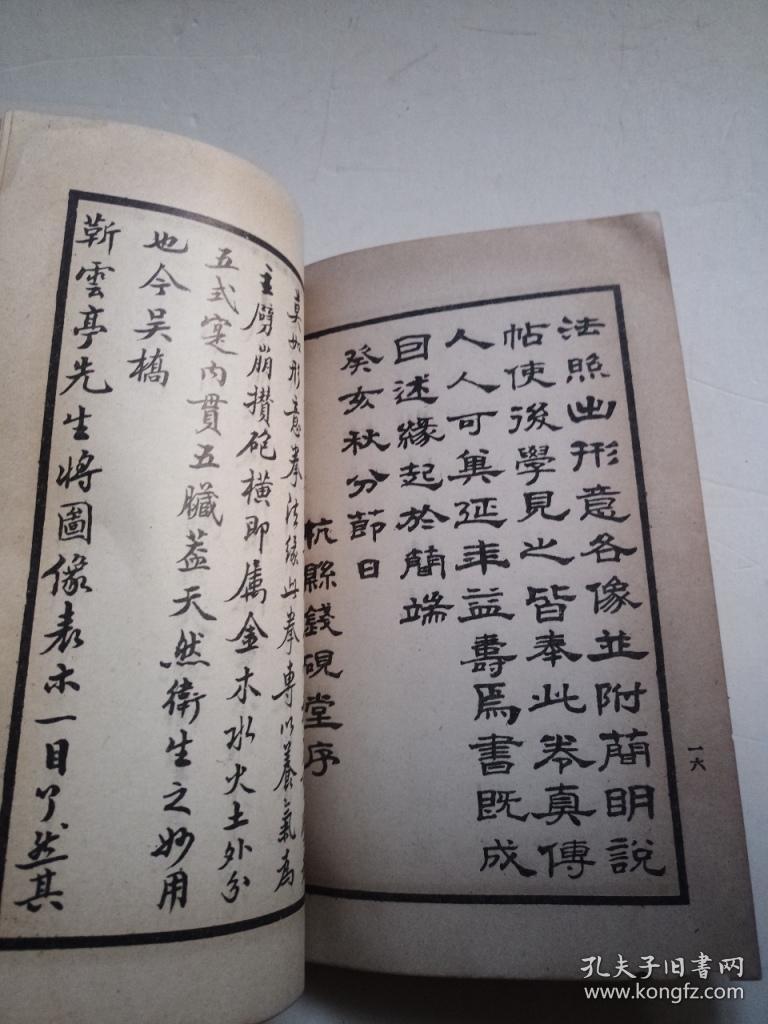 法照出形意各像並附簡明說
帖使後學見之皆奉此券真傳
人人可冀延年益壽焉書既成
目述緣起於簡端
癸亥秋分節日
杭縣錢硯堂序
一六
莫如形意拳法緣此拳專以養氣為
主劈崩攢砲橫即属金木水火土外分
五式寔內貫五臟蓋天然衛生之妙用
也今吳橋
靳雲亭先生將圖像表示一目了然其
孔夫子旧书网
www.kongfz.com